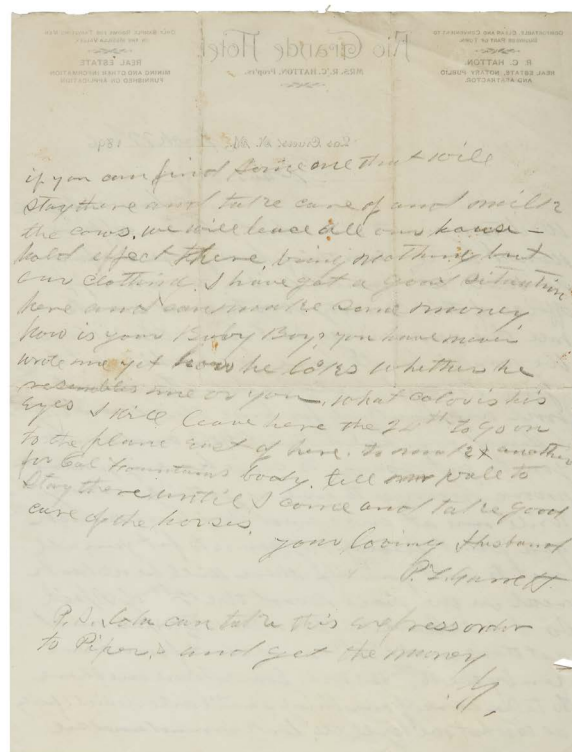 if you can find some one that will
stay there and take care of and milk
the cows, we will leave all our house-
hold effect there, bring nothing but
our clothing. I have got a good situation
here and can make some money
how is your Baby Boy? you have never
wrote me yet how he looks whether he
resembles me or you, what color is his
eyes I will leave here the to go on
to the plains east of here. to make another
for Col Fountains body. tell mr to
stay there until I come and take good
care of the horses.
your loving Husband
P. F. Garrett
P.S. Lola can take this express order
to Pipers and get the money